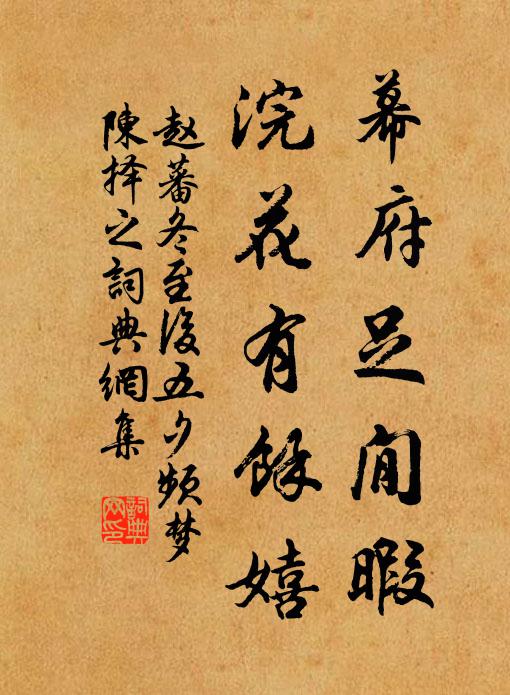 幕府足閒暇
浣花有餘嬉
赵蕃冬至後五夕频梦
陳择之詞典網集
詞典网印